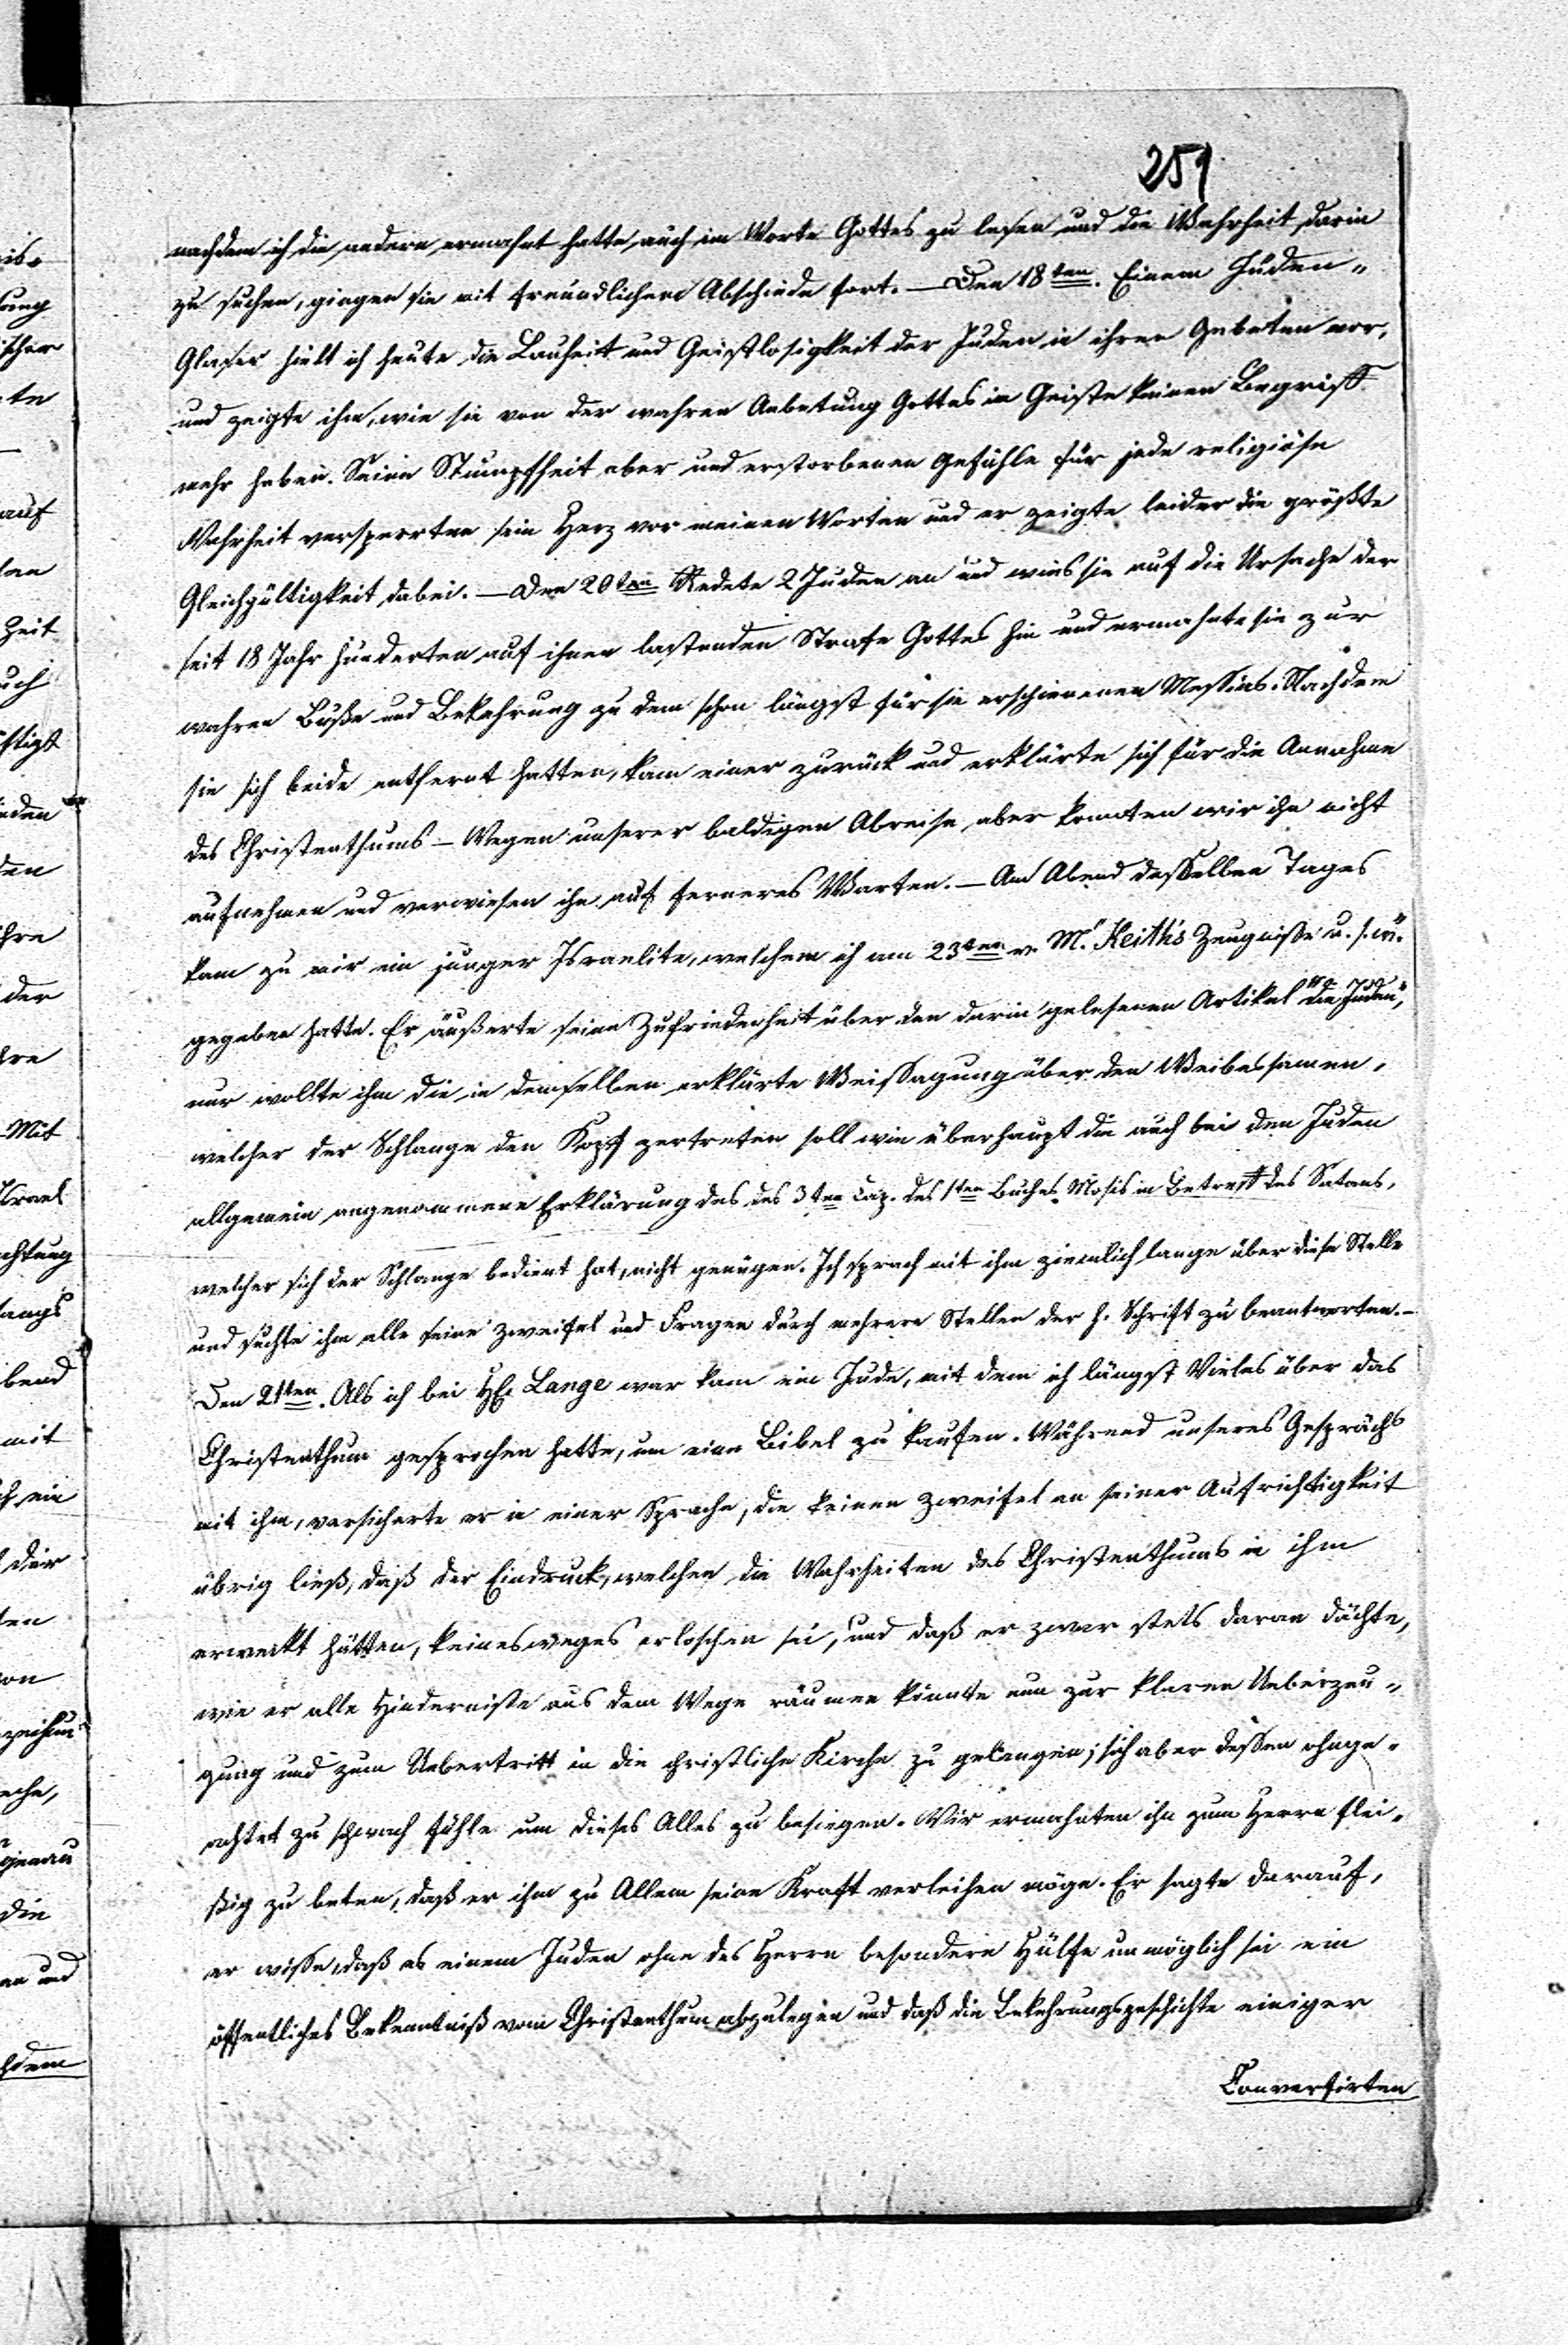 251
nachdem ich die andern ermahnt hatte, auch im Worte Gottes zu lesen und die Wahrheit darin
zu suchen, gingen sie mit freundlichem Abschiede fort. — Den 18ten. Einem Juden-
Glaser hielt ich heute die Lauheit und Geistlosigkeit der Juden in ihren Gebeten vor,
und zeigte ihm, wie sie von der wahren Anbetung Gottes im Geiste keinen Begriff
mehr haben. Seine Stumpfheit aber und erstorbenen Gefühle für jede religiöse
Wahrheit versperrten sein Herz vor meinen Worten und er zeigte leider die größte
Gleichgültigkeit dabei. — Den 20ten Redete 2 Juden an und wies sie auf die Ursache der
seit 18 Jahr hunderten auf ihnen lastenden Strafe Gottes hin und ermahnte sie zur
wahren Buße und Bekehrung zu dem schon längst für sie erschienenen Messias. Nachdem
sie sich beide entfernt hatten, kam einer zurück und erklärte sich für die Annahme
des Christenthums — Wegen unserer baldigen Abreise aber konnten wir ihn nicht
aufnehmen und verwiesen ihn auf ferneres Warten. — Am Abend desselben Tages
kam zu mir ein junger Israelite, welchem ich am 23ten v. M. "Keith's Zeugnisse u. s. w."
gegeben hatte. Er äußerte seine Zufriedenheit über den darin gelesenen Artikel "die Juden",
nur wollte ihm die in demselben erklärte Weissagung über den Weibessamen,
welcher der Schlange den Kopf zertreten soll wie überhaupt die auch bei den Juden
allgemein angenommene Erklärung des des 3ten Cap. des 1ten Buches Mosis in Betreff des Satans,
welcher sich der Schlange bedient hat, nicht genügen. Ich sprach mit ihm ziemlich lange über diese Stelle
und suchte ihm alle seine Zweifel und Fragen durch mehrere Stellen der h. Schrift zu beantworten. —
Den 21ten. Als ich bei H. Lange war kam ein Jude, mit dem ich längst Vieles über das
Christenthum gesprochen hatte, um eine Bibel zu kaufen. Während unseres Gesprächs
mit ihm, versicherte er in einer Sprache, die keinen Zweifel an seiner Aufrichtigkeit
übrig ließ, daß der Eindruck, welchen die Wahrheiten des Christenthums in ihm
erweckt hätten, keinesweges erloschen sei, und daß er zwar stets daran dächte,
wie er alle Hindernisse aus dem Wege räumen könnte um zur klaren Ueberzeu-
gung und zum Uebertritt in die christliche Kirche zu gelangen; sich aber dessen ohnge-
achtet zu schwach fühle um dieses Alles zu besiegen. Wir ermahnten ihn zum Herrn flei-
ßig zu beten, daß er ihm zu Allem seine Kraft verleihen möge. Er sagte darauf,
er wisse, daß es einem Juden ohne des Herrn besondere Hülfe unmöglich sei ein
öffentliches Bekenntniß vom Christenthum abzulegen und daß die Bekehrungsgeschichte einiger
Convertirten